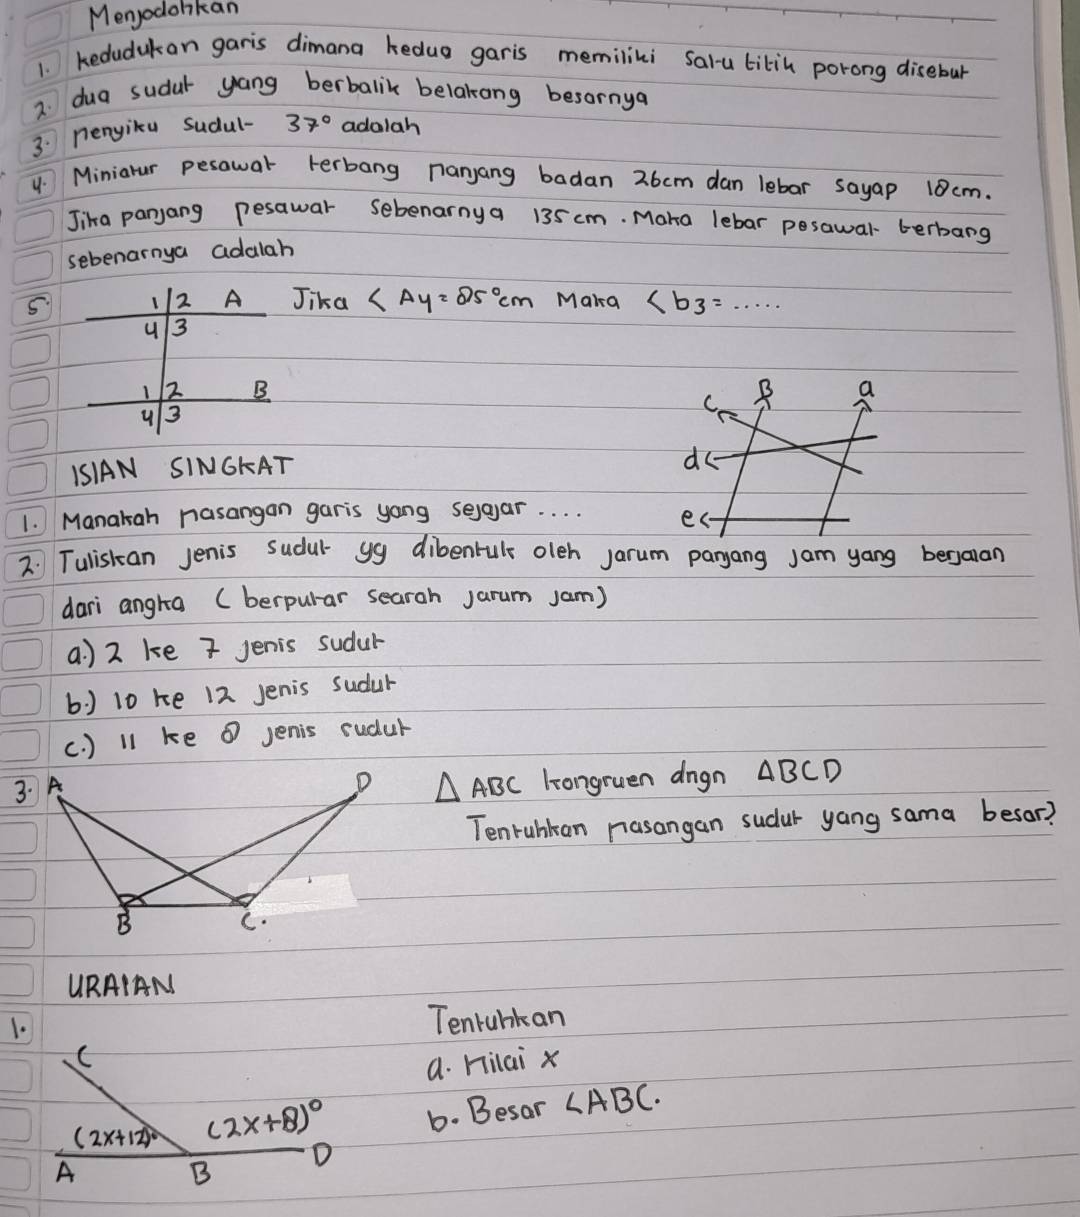 Menjodohkan
1. kedudukan garis dimana kedua garis memiliki satu titik potong disebut
2. dua sudut yang berbalik belakang besarnya
3. penyiku sudut 37° adalah
4. Miniatur pesawat terbang panjang badan 26cm dan lebar sayap 18cm.
Jika panjang pesawat sebenarnya 135 cm. Maka lebar pesawat terbang
sebenarnya adalah
5. 1 2 A Jika < A4 = 85° cm Maka < b3 = .....
4 3
1 2 B
4 3
C B a
d
e
ISIAN SINGKAT
1. Manakah pasangan garis yang sejajar ....
2. Tuliskan jenis sudut yg dibentuk oleh jarum panjang jam yang berjalan
dari angka (berputar searah jarum jam)
a.) 2 ke 7 jenis sudut
b.) 10 ke 12 jenis sudut
c.) 11 ke 8 jenis sudut
3. A D Δ ABC kongruen dngn ΔBCD
Tentuhkan pasangan sudut yang sama besar?
B C.
URAIAN
1. Tentuhkan
C a. nilai x
(2x+12)° (2x+8)° b. Besar <ABC.
A B D